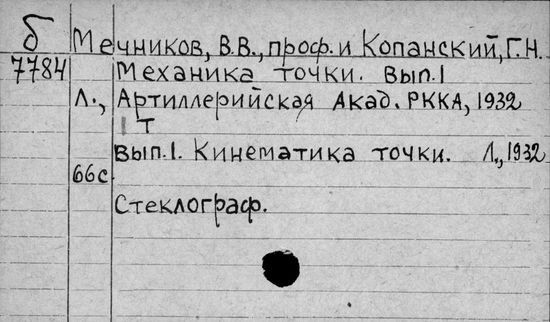 б Мечников, В.В., проф. и Копанский, Г.Н.
7784 Механика точки. Вып.1
Л., Артиллерийская Акад. РККА, 1932
1 т
Вып.1. Кинематика точки. Л., 1932
66с.
Стеклограф.